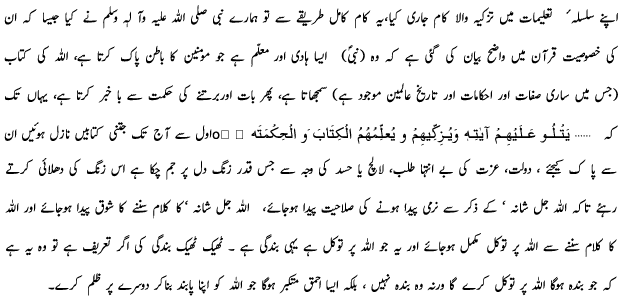 اپنے سلسلہٴ تعلیمات میں تزکیہ والا کام جاری کیا، یہ کام کامل طریقے سے تو ہمارے نبی صلی اللہ علیہ وآلہٖ وسلم نے کیا جیسا کہ ان
کی خصوصیت قرآن میں واضح بیان کی گئی ہے کہ وہ (نبیؐ) ایسا ہادی اور معلم ہے جو مومنین کا باطن پاک کرتا ہے، اللہ کی کتاب
(جس میں ساری صفات اور احکامات اور تاریخ عالمین موجود ہے) سمجھاتا ہے، پھر بات اور برتنے کی حکمت سے با خبر کرتا ہے، یہاں تک
کہ ...... يَتْلُو عَلَيْهِمْ آيَاتِه وَيُزَكِّيهِمْ وَ يُعَلِّمُهُمُ الْكِتَابَ وَ الْحِكْمَتَه ۝ اول سے آج تک جتنی کتابیں نازل ہوئیں ان
سے پاک کیجئے، دولت، عزت کی بے انتہا طلب، لالچ یا حسد کی وجہ سے جس قدر زنگ دل پر جم چکا ہے اس زنگ کی دھلائی کرتے
رہئے تاکہ اللہ جل شانہٗ کے ذکر سے نرمی پیدا ہونے کی صلاحیت پیدا ہوجائے، اللہ جل شانہٗ کا کلام سننے کا شوق پیدا ہوجائے اور اللہ
کا کلام سننے سے اللہ پر توکل مکمل ہوجائے اور یہ جو اللہ پر توکل ہے یہی بندگی ہے ۔ ٹھیک ٹھیک بندگی کی اگر تعریف ہے تو وہ یہ ہے
کہ جو بندہ ہوگا اللہ پر توکل کرے گا ورنہ وہ بندہ نہیں، بلکہ ایسا احمق متکبر ہوگا جو اللہ کو اپنا پابند بناکر دوسرے پر ظلم کرے۔